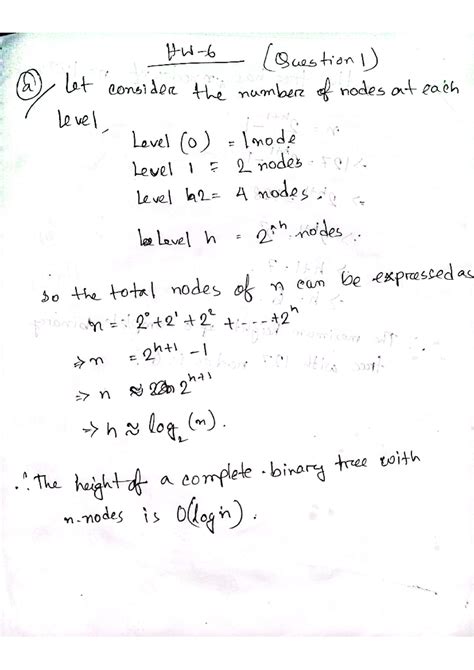 HW-6 (Question 1)
(a) Let consider the number of nodes at each
level,
Level (0) = 1 node
Level 1 = 2 nodes
Level 2 = 4 nodes.
Level h = 2^h nodes.
so the total nodes of n can be expressed as
n = 2^0 + 2^1 + 2^2 + ---- + 2^h
⇒ n = 2^{h+1} - 1
⇒ n ≈ 2^{h+1}
⇒ h ≈ log_2 (n).
∴ The height of a complete binary tree with
n-nodes is O(log n).